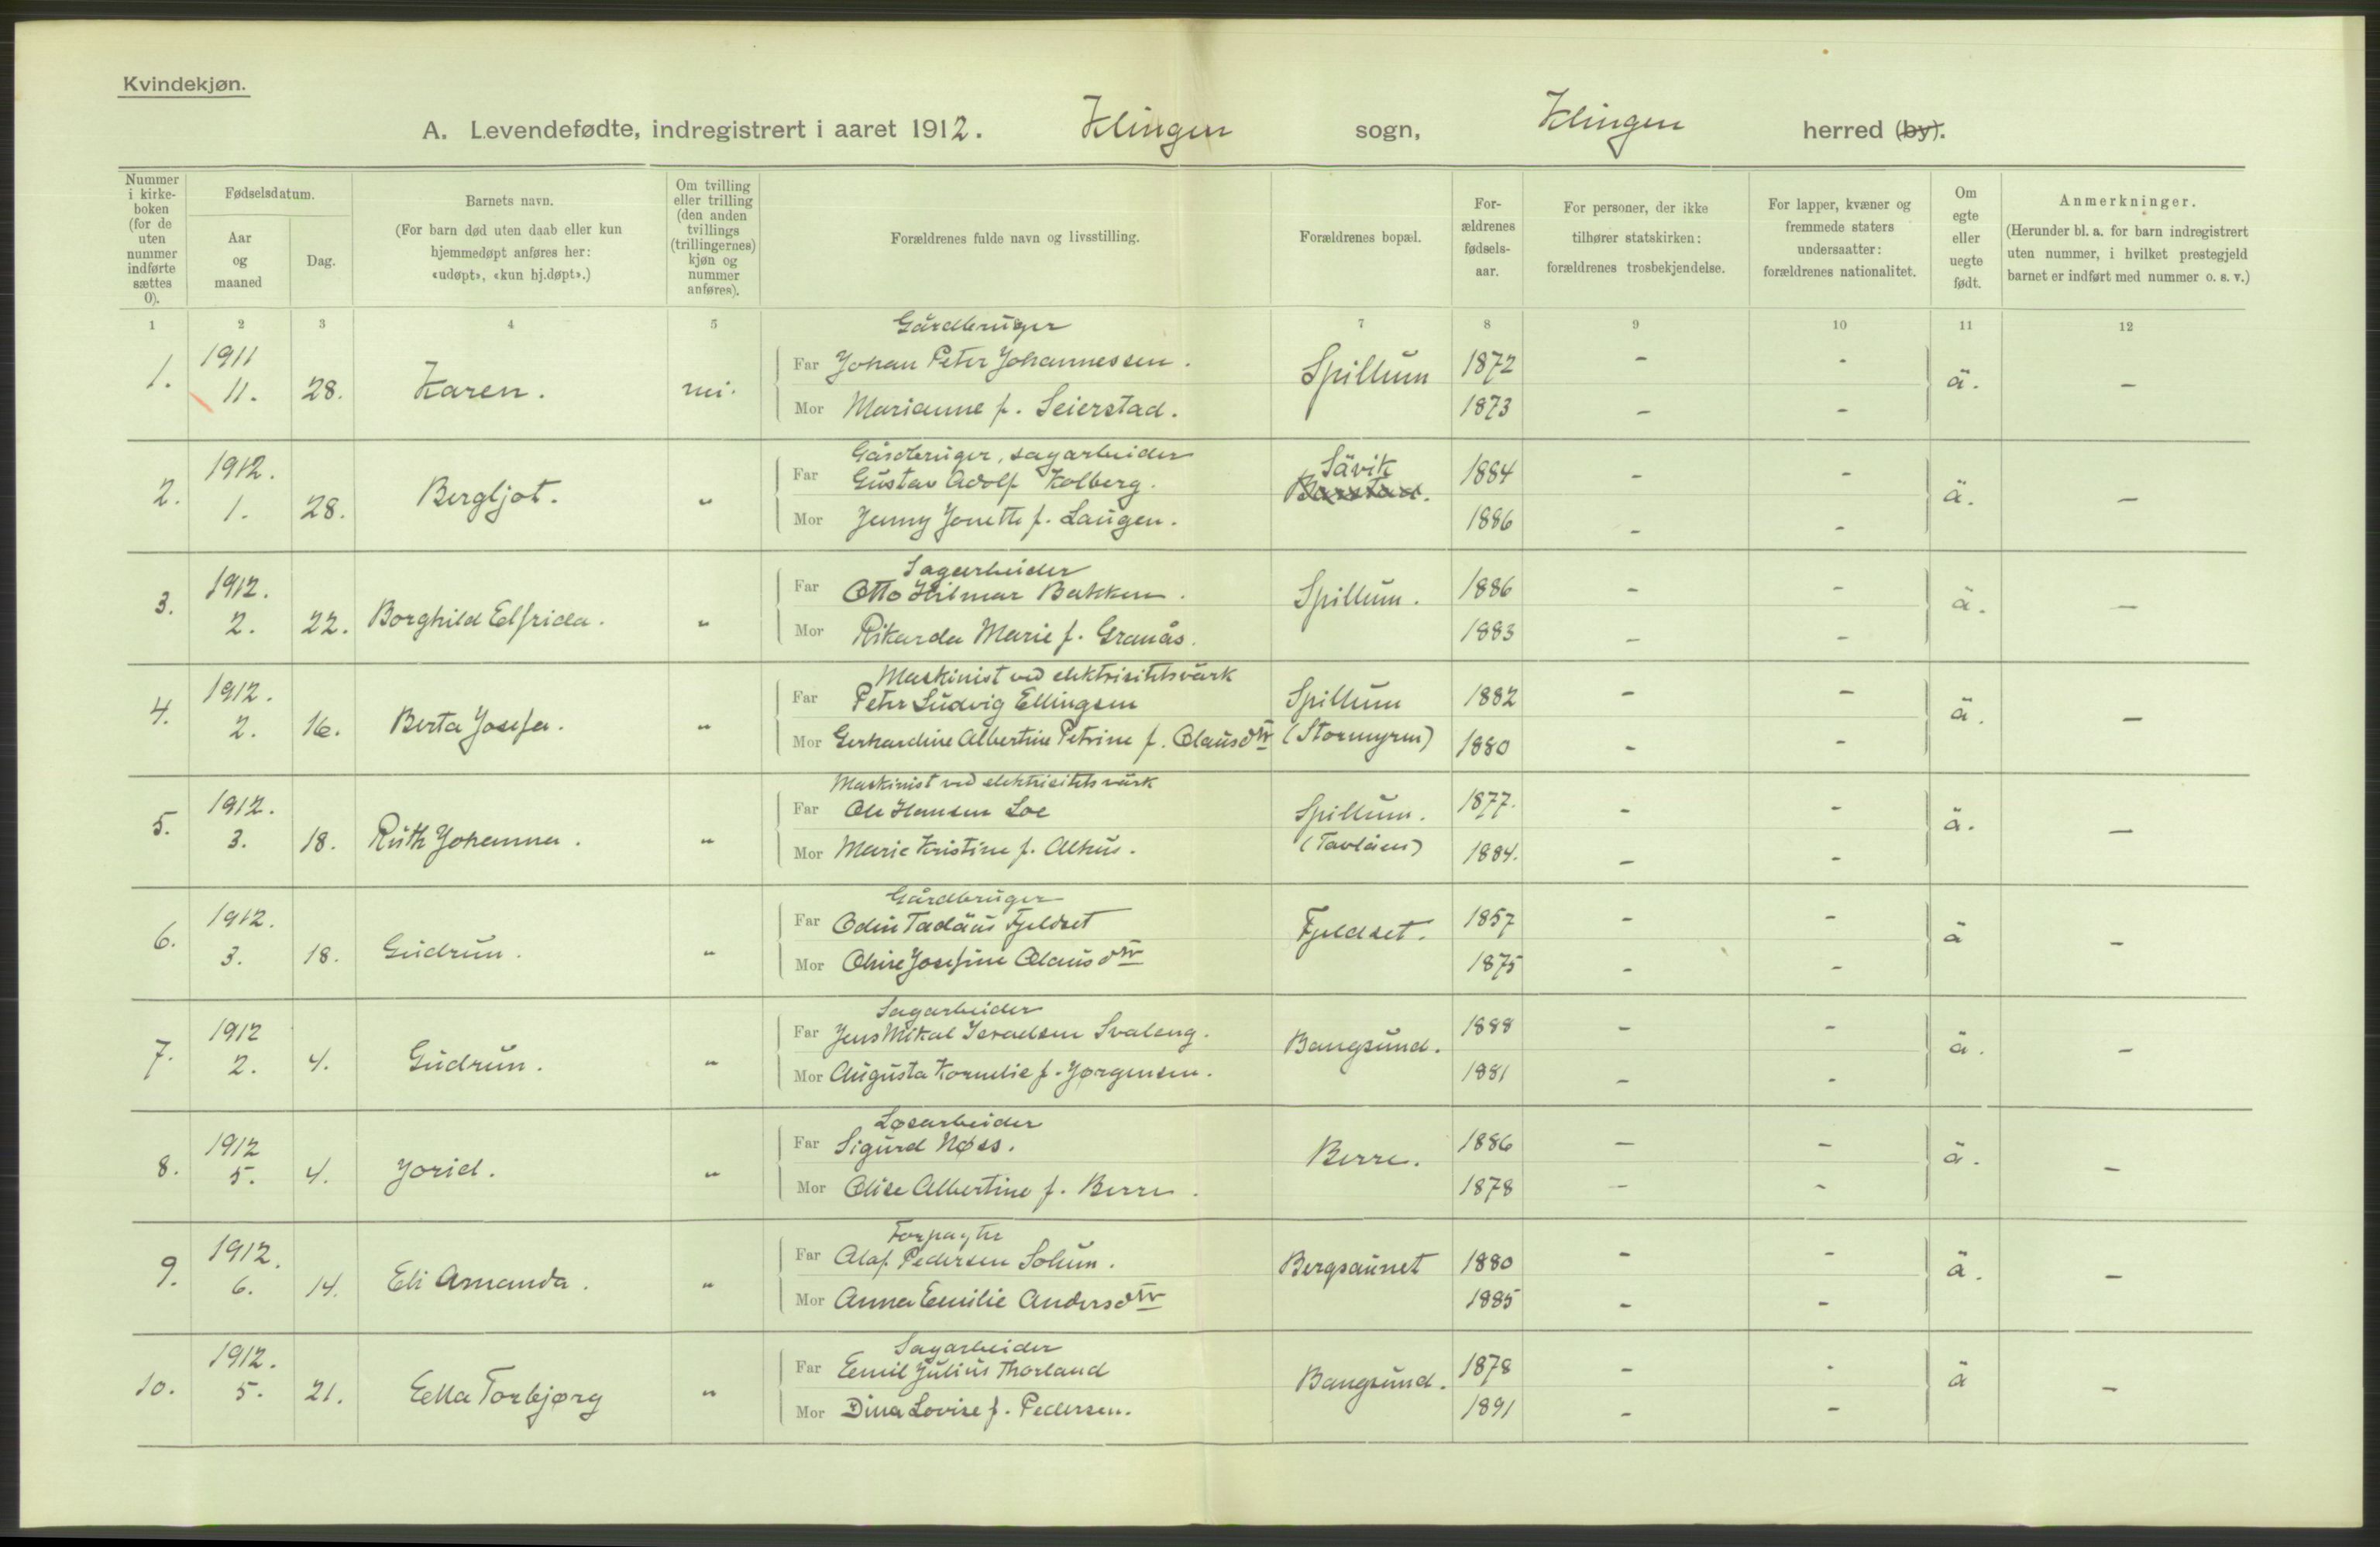 Kvindekjøn.
A. Levendefødte, indregistrert i aaret 1912. Klingen sogn, Klingen herred (by).
Nummer i kirke-boken (for de uten nummer indførte sættes 0).
Fødselsdatum.
Aar og maaned
Dag.
Barnets navn.
(For barn død uten daab eller kun hjemmedøpt anføres her: «udøpt», «kun hj.døpt».)
Om tvilling eller trilling (den anden tvillings (trillingernes) kjøn og nummer anføres).
Forældrenes fulde navn og livsstilling.
Forældrenes bopæl.
For-ældrenes fødsels-aar.
For personer, der ikke tilhører statskirken: forældrenes trosbekjendelse.
For lapper, kvæner og fremmede staters undersaatter: forældrenes nationalitet.
Om egte eller uegte født.
Anmerkninger.
(Herunder bl. a. for barn indregistrert uten nummer, i hvilket prestegjeld barnet er indført med nummer o. s. v.)
1 2 3 4 5 7 8 9 10 11 12
Gårdbruger
1. 1911 11. 28. Karen. nei. Far Johan Peter Johannessen. Spillum 1872 - - ä. -
Mor Marianne f. Seierstad. 1873 - -
Gårdbruger, sagarbeider
2. 1912. 1. 28. Bergljot. " Far Gustav Adolf Kolberg. Sävik 1884 - - ä. -
Mor Jenny Jonette f. Laugen. 1886 - -
Sagarbeider
3. 1912. 2. 22. Borghild Elfrida. " Far Otto Hilmar Bakken. Spillum. 1886 - - ä. -
Mor Rikarda Marie f. Granås. 1883 - -
Maskinist ved elektrisitetsværk
4. 1912. 2. 16. Berta Josefa. " Far Peter Ludvig Ellingsen Spillum 1882 - - ä. -
Mor Gerhardine Albertine Petrine f. Clausdtr (Stormyren) 1880 - -
Maskinist ved elektricitetsværk
5. 1912. 3. 18. Ruth Johanna. " Far Ole Hansen Loe Spillum. 1877. - - ä. -
Mor Marie Kristine f. Alhus. 1884. - -
Gårdbruger
6. 1912. 3. 18. Gudrun. " Far Odin Tadäus Fjeldset Fjeldset. 1857 - - ä -
Mor Josefine 1875 - -
Sagarbeider
7. 1912 2. 4. Gudrun. " Far Jens Mikal Israelsen Svaleng. Bangsund. 1888 - - ä. -
Mor Augusta Kornelie f. Jørgensen. 1881 - -
Løsarbeider
8. 1912 5. 4. Jorid. " Far Sigurd Nøss. Berre. 1886 - - ä. -
Mor Olise Albertine f. Berre. 1878 - -
Forpagter
9. 1912. 6. 14. Eli Amanda. " Far Olaf Pedersen Solum. Bergsaunet 1880 - - ä. -
Mor Anna Emilie Andersdtr 1885 - -
Sagarbeider
10. 1912. 5. 21. Ella Torbjørg " Far Emil Julius Thorland Bangsund. 1878 - - ä -
Mor Dina Lovise f. Pedersen. 1891 - -